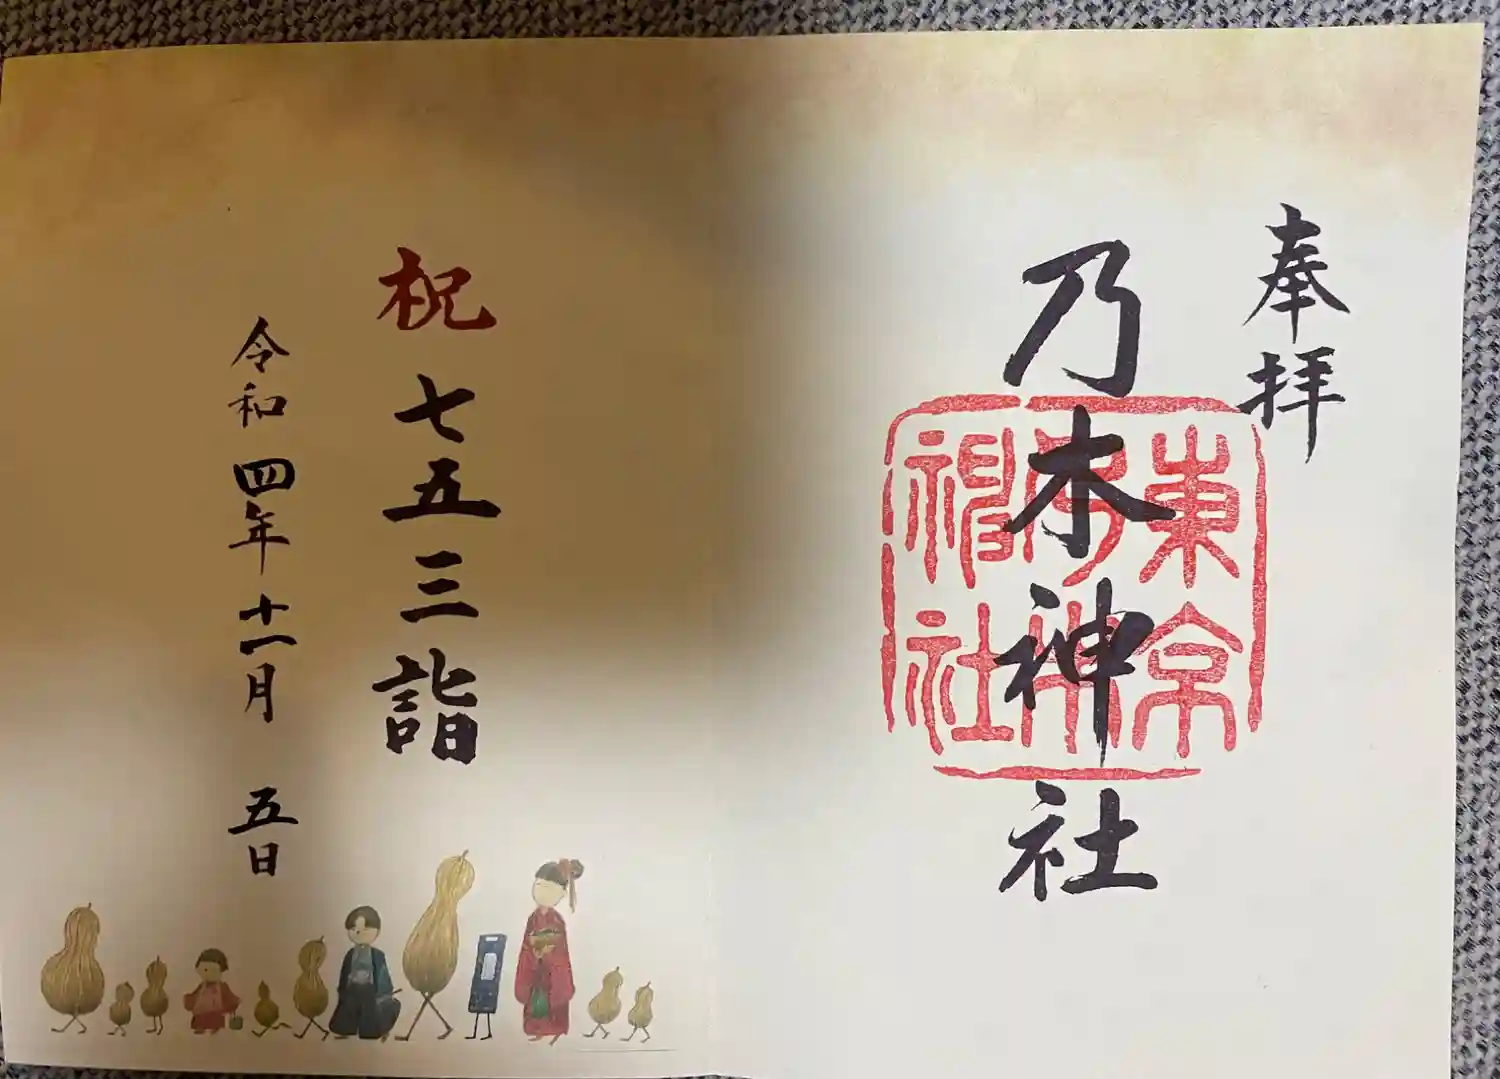 奉拝
乃木神社
東京
神社
祝 七五三詣
令和四年十一月 五日